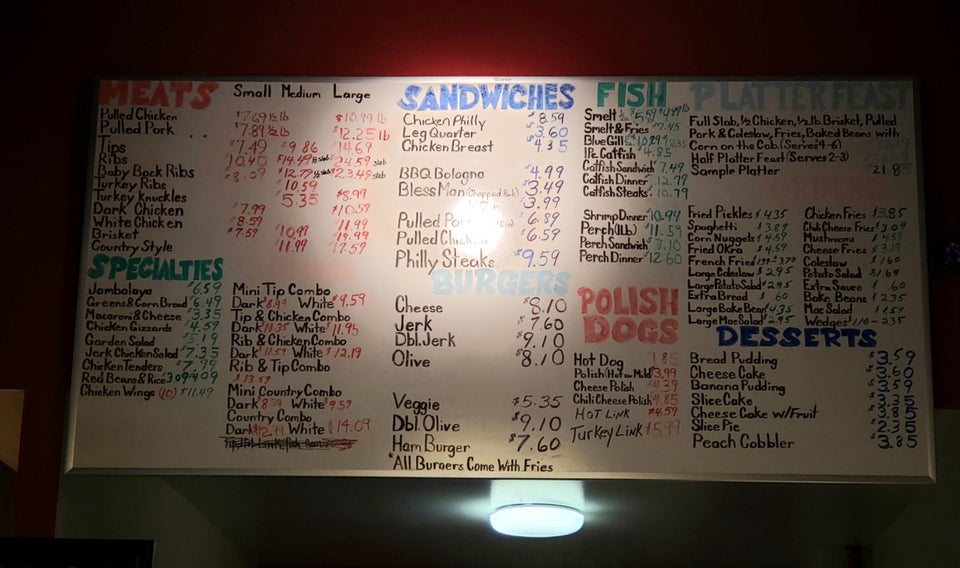 MEATS Small Medium Large
Pulled Chicken $7.69 ½ lb $10.99 lb
Pulled Pork $7.89 ½ lb $12.25 lb
Tips $7.49 $9.86 $14.69
Ribs 10.40 $14.49 ½ slab $24.59 slab
Baby Back Ribs $12.79 ½ slab $23.49 slab
Turkey Ribs 10.59
Turkey Knuckles 5.35 $8.99
Dark Chicken $7.99 $10.59
White Chicken $8.59 11.99
Brisket $7.59 10.99
Country Style $11.99 $17.59
SPECIALTIES
Jambolaya $6.59
Greens & Corn Bread $6.49
Macaroni & Cheese $3.35
Chicken Gizzards $4.59
Garden Salad $5.19
Jerk Chicken Salad $7.35
Chicken Tenders $7.99
Red Beans & Rice 3.09 4.09
Chicken Wings (10) $11.49
Mini Tip Combo
Dark $8.99 White $9.59
Tip & Chicken Combo
Dark $11.35 White $11.95
Rib & Chicken Combo
Dark $11.59 White $12.19
Rib & Tip Combo
$13.59
Mini Country Combo
Dark $8.99 White $9.59
Country Combo
Dark White $14.09
SANDWICHES
Chicken Philly $8.59
Leg Quarter $3.60
Chicken Breast $4.35
BBQ Bologna $4.99
Bless Man $3.49
$3.99
Pulled $6.89
Pulled Chicken $6.59
Philly Steaks $9.59
BURGERS
Cheese $8.10
Jerk $7.60
Dbl.Jerk $9.10
Olive $8.10
Veggie $5.35
Dbl.Olive $9.10
Ham Burger $7.60
*All Burgers Come With Fries
FISH
Smelt
Smelt & Fries $7.45
Blue Gill
1 Pc. Catfish $4.85
Catfish Sandwich 7.49
Catfish Dinner $12.79
Catfish Steaks $10.79
Shrimp Dinner $10.99
Perch (1Lb) $11.59
Perch Sandwich $7.10
Perch Dinner $12.60
POLISH
DOGS
Hot Dog 1.85
Polish (Hot or Mild) $3.99
Cheese Polish $4.39
Chili Cheese Polish $4.85
HOT LINK $4.59
Turkey Link $5.99
PLATTER FEAST
Full Slab, ½ Chicken, ½ Lb. Brisket, Pulled
Pork & Coleslaw, Fries, Baked Beans with
Corn on the Cob. (Serves 4-6)
Half Platter Feast (Serves 2-3)
Sample Platter 21.85
Fried Pickles $4.35
Spaghetti $3.87
Corn Nuggets $4.59
Fried Okra $4.59
French Fries
Large Coleslaw $2.95
Large Potato Salad $2.95
Extra Bread $.60
Large Bake Bean $4.35
Large Mac Salad $2.95
Chicken Fries $3.85
Chili Cheese Fries $3.09
Mushrooms $4.59
Cheese Fries $3.19
Coleslaw $1.60
Potato Salad $1.69
Extra Sauce $.60
Bake Beans $2.35
Mac Salad $1.59
Wedges 1.10 - 2.35
DESSERTS
Bread Pudding $3.59
Cheese Cake $3.60
Banana Pudding $3.59
Slice Cake $3.35
Cheese Cake w/Fruit $3.85
Slice Pie $2.35
Peach Cobbler $3.85